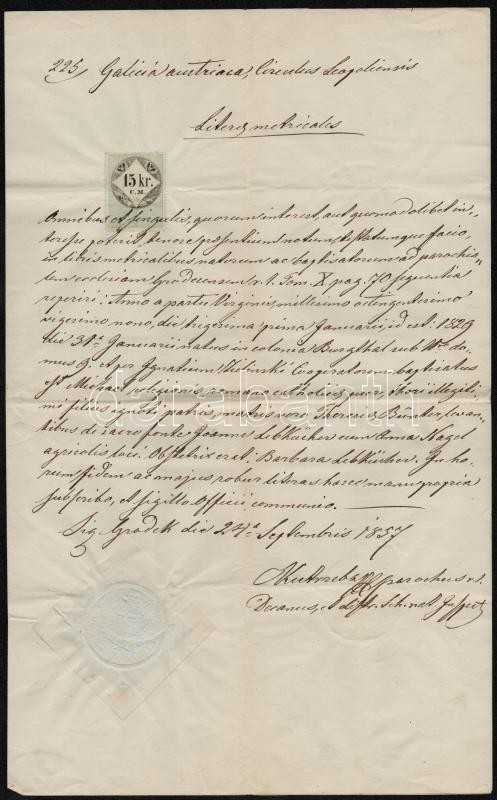 225/ Galicia austriaca, Circulus Leopoliensis
Literæ metricales
15 kr.
C. M.
Omnibus et singulis, quorum interest, aut quomodolibet in-
teresse poterit, tenore præsentium notum testatumque facio,
in libris metricalibus natorum ac baptisatorum ad parochia-
lem ecclesiam Grodecensem r. l. Tom. X pag. 70 sequentia
reperiri: Anno a partu Virginis millesimo octingentesimo
vigesimo nono, die trigesima prima Januarii, id est: 1829
die 31ª Januarii natus in colonia Burgthal sub Nro do-
mus 9, et per Ignatium Cooperatorem baptisatus
est Michael religionis romano catholicæ, puer thori illegiti-
mi filius ignoti patris, matris vero Theresiæ levan-
tibus de sacro fonte Joanne Lebkücher cum Anna Nagel
agricolis loci. Obstetrix erat: Barbara Lebkücher. In ho-
rum fidem ac majus robur literas hasce manu propria
subscribo, et sigillo Officii communio.
Sig. Grodek die 24ª Septembris 1857
parochus r. l.
Decanus, et distr. Sch. nat. Insp
darabanth